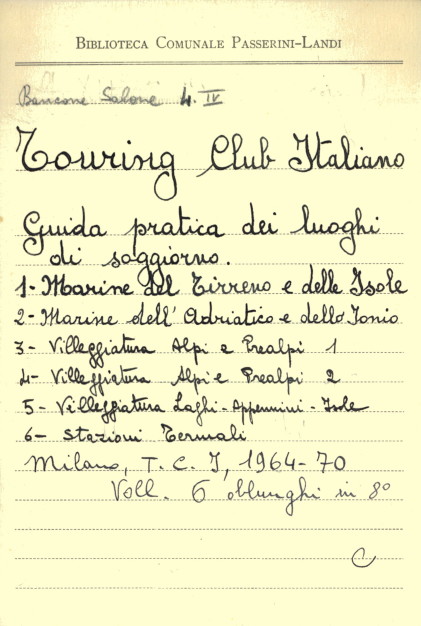 BIBLIOTECA COMUNALE PASSERINI-LANDI
Bancone Salone 4. IV
Touring Club Italiano
Guida pratica dei luoghi
di soggiorno.
1- Marine del Tirreno e delle Isole
2- Marine dell'Adriatico e dello Ionio
3- Villeggiatura Alpi e Prealpi 1
4- Villeggiatura Alpi e Prealpi 2
5- Villeggiatura Laghi-Appennini-Isole
6- Stazioni Termali
Milano, T. C. I, 1964-70
Voll. 6 oblunghi in 8°
C